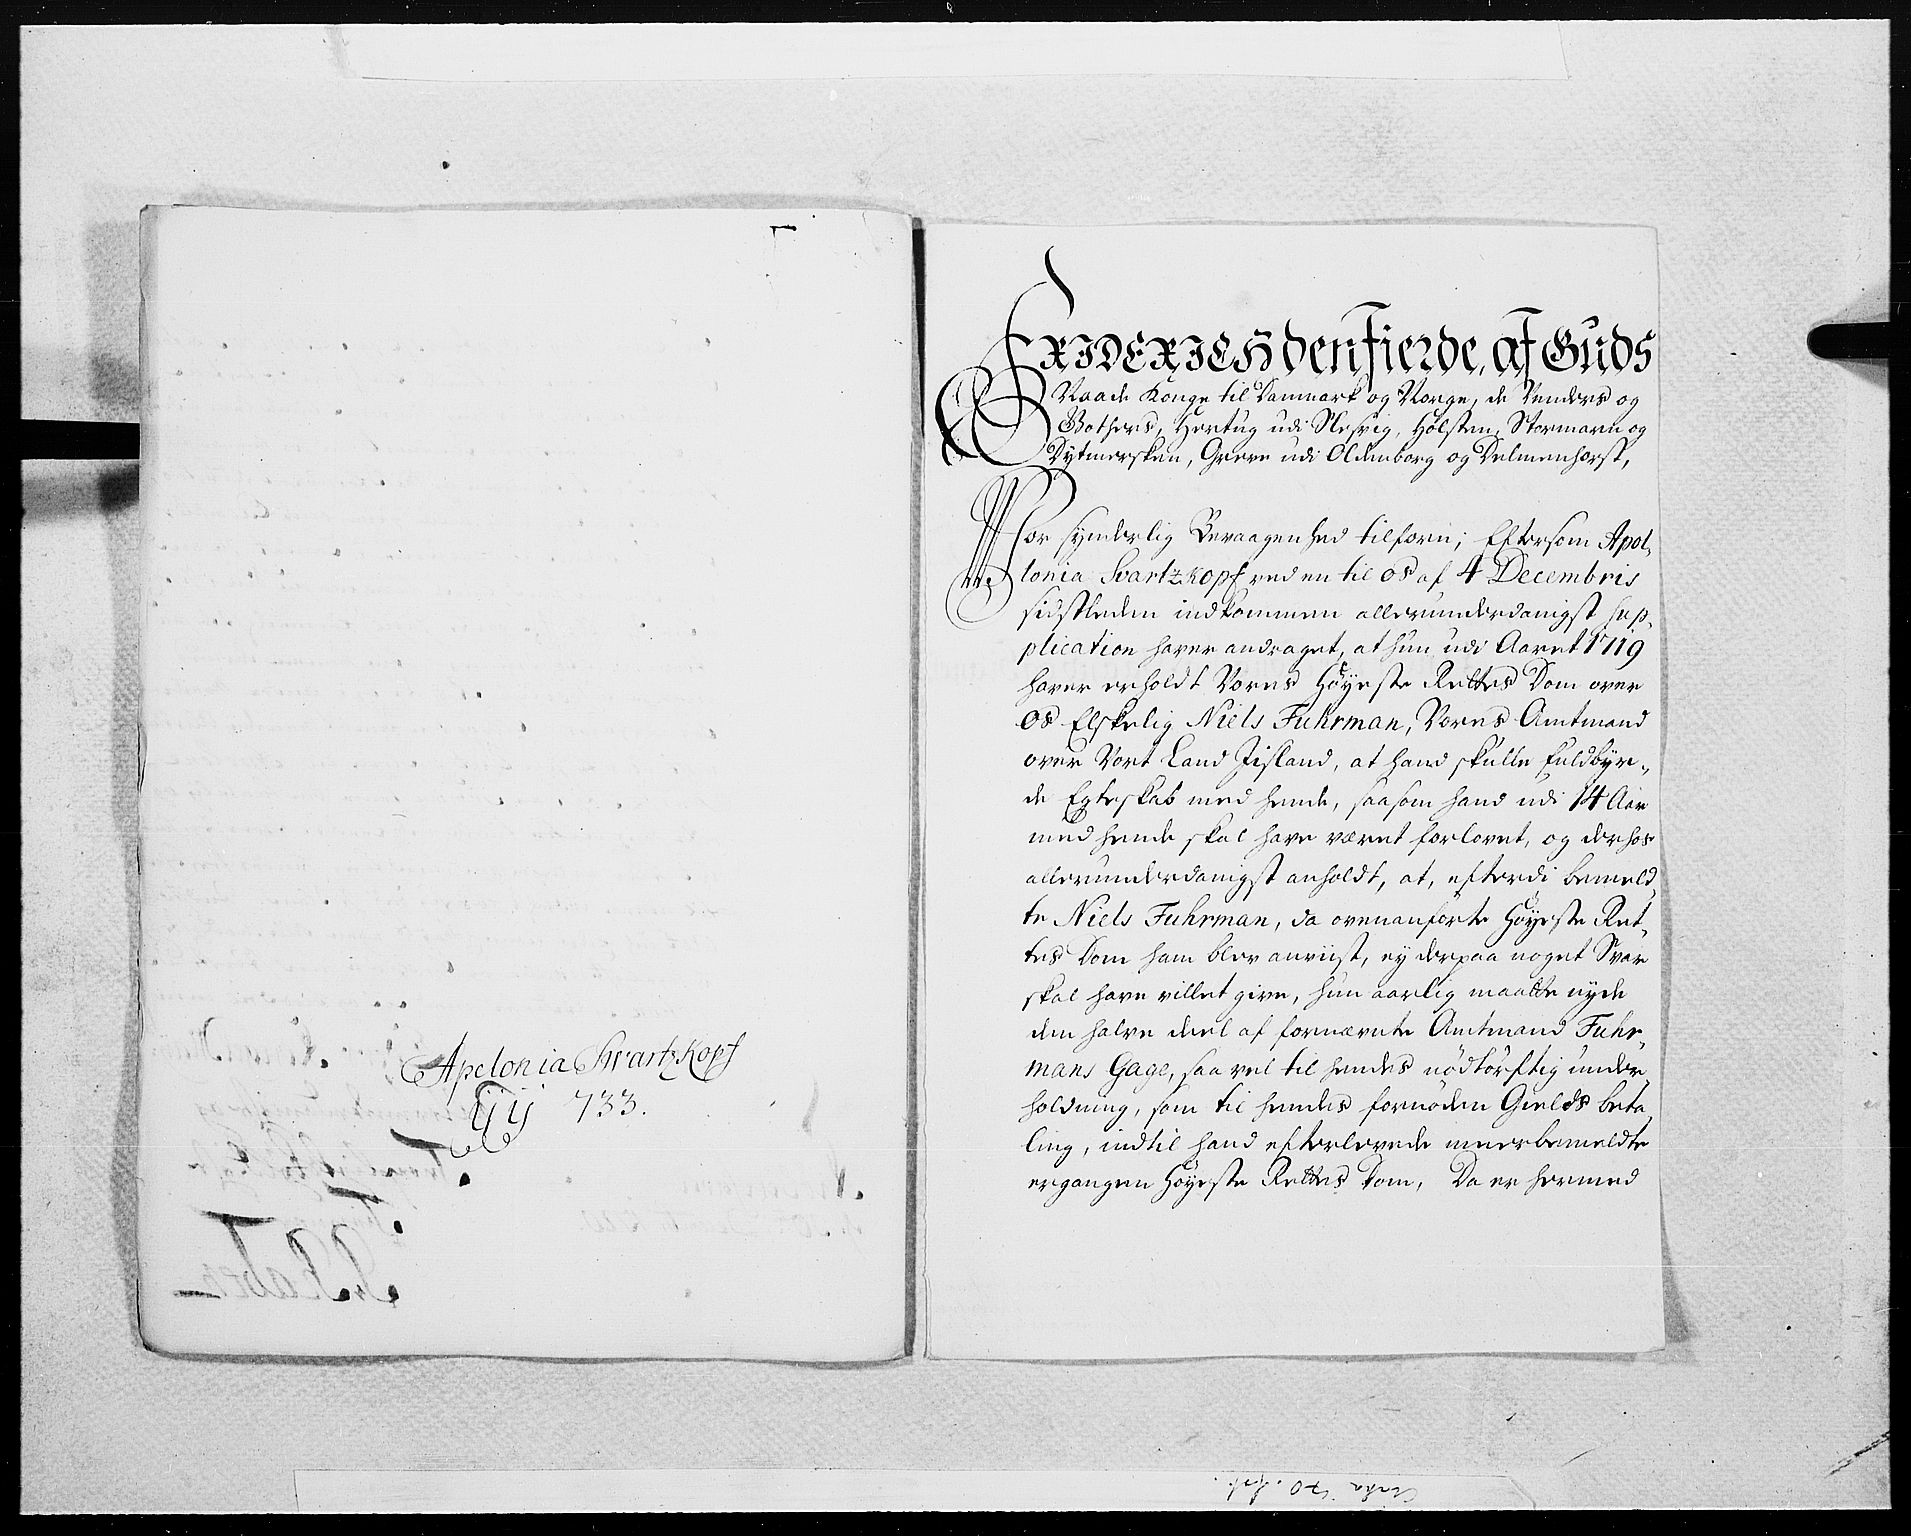 Apelonia Swartzkopf
733.
FRIDERICH den Fierde, af Guds
Naade Konge til Danmark og Norge, de Venders og
Gothers, Hertug udi Slesvig, Holsten, Stormarn og
Dytmersken, Greve udi Oldenborg og Delmenhorst,
Vor synderlig Bevaagenhed tilforn; Eftersom Apol-
lonia Svartzkopf ved en til os af 4 Decembris
sidstleden indkommen allerunderdanigst Sup-
plication haver andraget, at hun udi Aaret 1719
haver erholdt Vores Høyeste Rettes Dom over
os Elskelig Niels Fuhrman, Vores Amtmand
over Vort Land Jisland, at hand skulle fuldbyr-
de Egteskab med hende, saasom hand udi 14 Aar
med hende skal have været forlovet, og derhos
allerunderdanigst anholdt, at, efterdi bemeld-
te Niels Fuhrman, da ovenanførte Høyeste Ret-
tes Dom ham blev anviist, ey derpaa noget Svar
skal have villet give, hun aarlig maatte nyde
den halve deel af fornævnte Amtmand Fuhr-
mans Gage, saa vel til hendes nødtørftig under-
holdning, som til hendes fornøden Gields beta-
ling, indtil hand efterlevede meerbemeldte
ergangen Høyeste Rettes Dom, Da er hermed